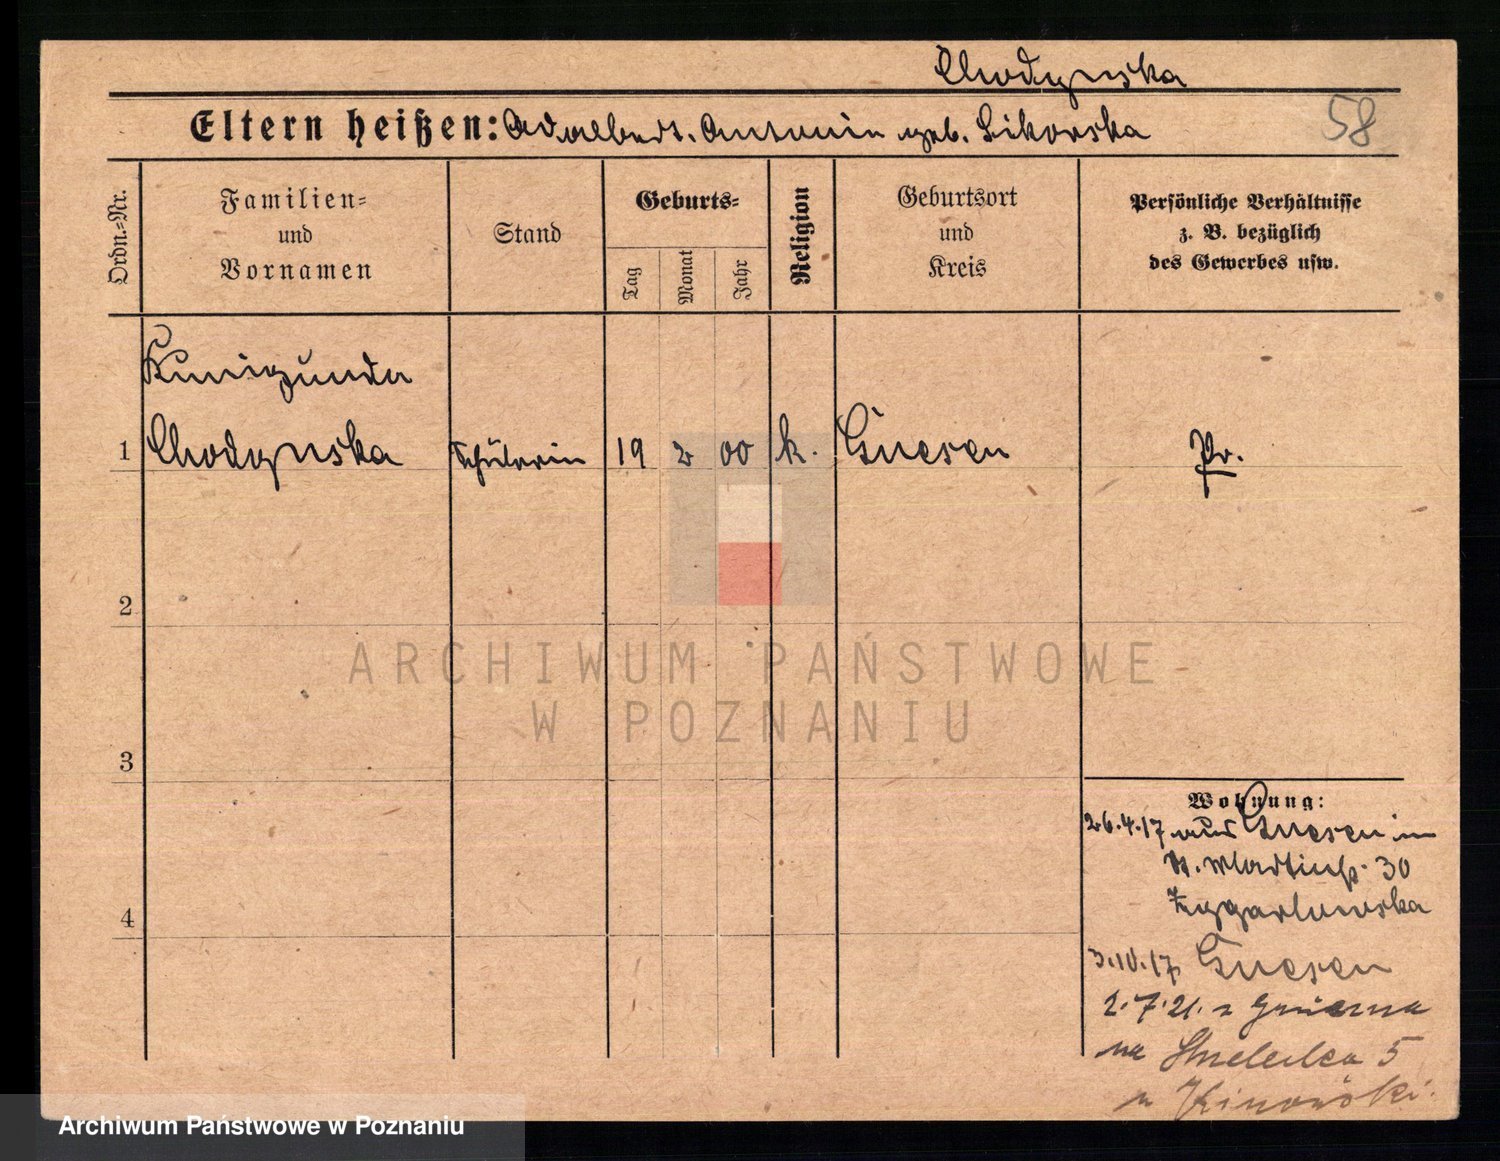 Chodynska
Eltern heißen: Adalbert. Antonin geb. Sikorska
58
Ordn.=Nr.
Familien=
und
Vornamen
Stand
Geburts=
Tag
Monat
Jahr
Religion
Geburtsort
und
Kreis
Persönliche Verhältnisse
z. B. bezüglich
des Gewerbes usw.
Kunigunda
1 Chodynska Schülerin 19 2 00 k. Gnesen Pr.
2
ARCHIWUM PAŃSTWOWE
W POZNANIU
3
Wohnung:
26.4.17 aus Gnesen in
St. Martinstr. 30
4
3.10.17 Gnesen
2.7.21. z Gniezna
na Strzelecka 5
u
Archiwum Państwowe w Poznaniu